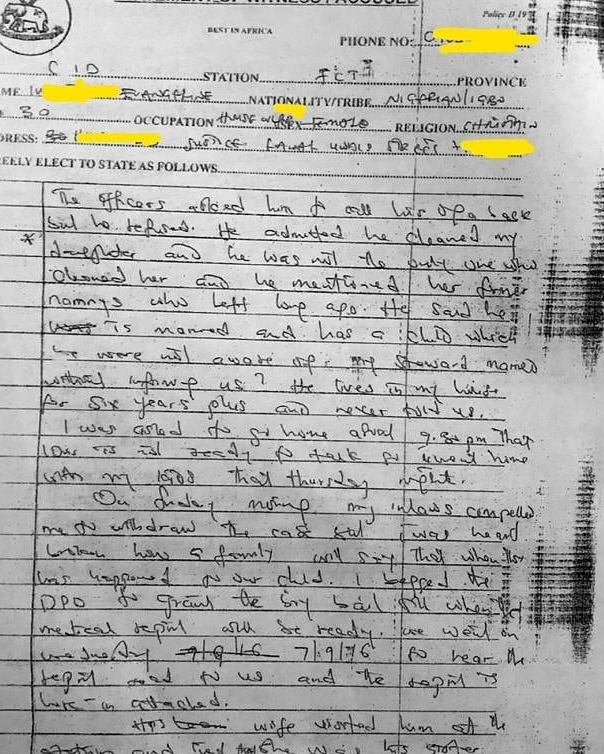 Police D 19
BEST IN AFRICA
PHONE NO:
C I D STATION FCT PROVINCE
ME EVANGELINE NATIONALITY/TRIBE NIGERIAN/1980
30 OCCUPATION HOUSE WIFE FEMALE RELIGION CHRISTIAN
DRESS: JUSTICE LAWAL UWAIS STREET
EELY ELECT TO STATE AS FOLLOWS
The officers asked him to call his Oga back
but he refused. He admitted he cleaned my
* daughter and he was not the only one who
cleaned her and he mentioned her former
nannys who left long ago. He said he
is married and has a child which
we were not aware of. my steward named
without us? He lives in my house
for six years plus and never told us.
I was asked to go home about 9.30pm That
is not ready to talk so I went home
with my that thursday night.
On friday morning my inlaws compelled
me to withdraw the case but I was heart
broken how a family will say That when this
has happened to our child. I begged the
DPO to grant the boy bail till when the
medical report will be ready. we went on
wednesday 7/9/16 to hear the
report read to us and the report is
here-in attached.
His wife visited him at the
and lied that she was his sister